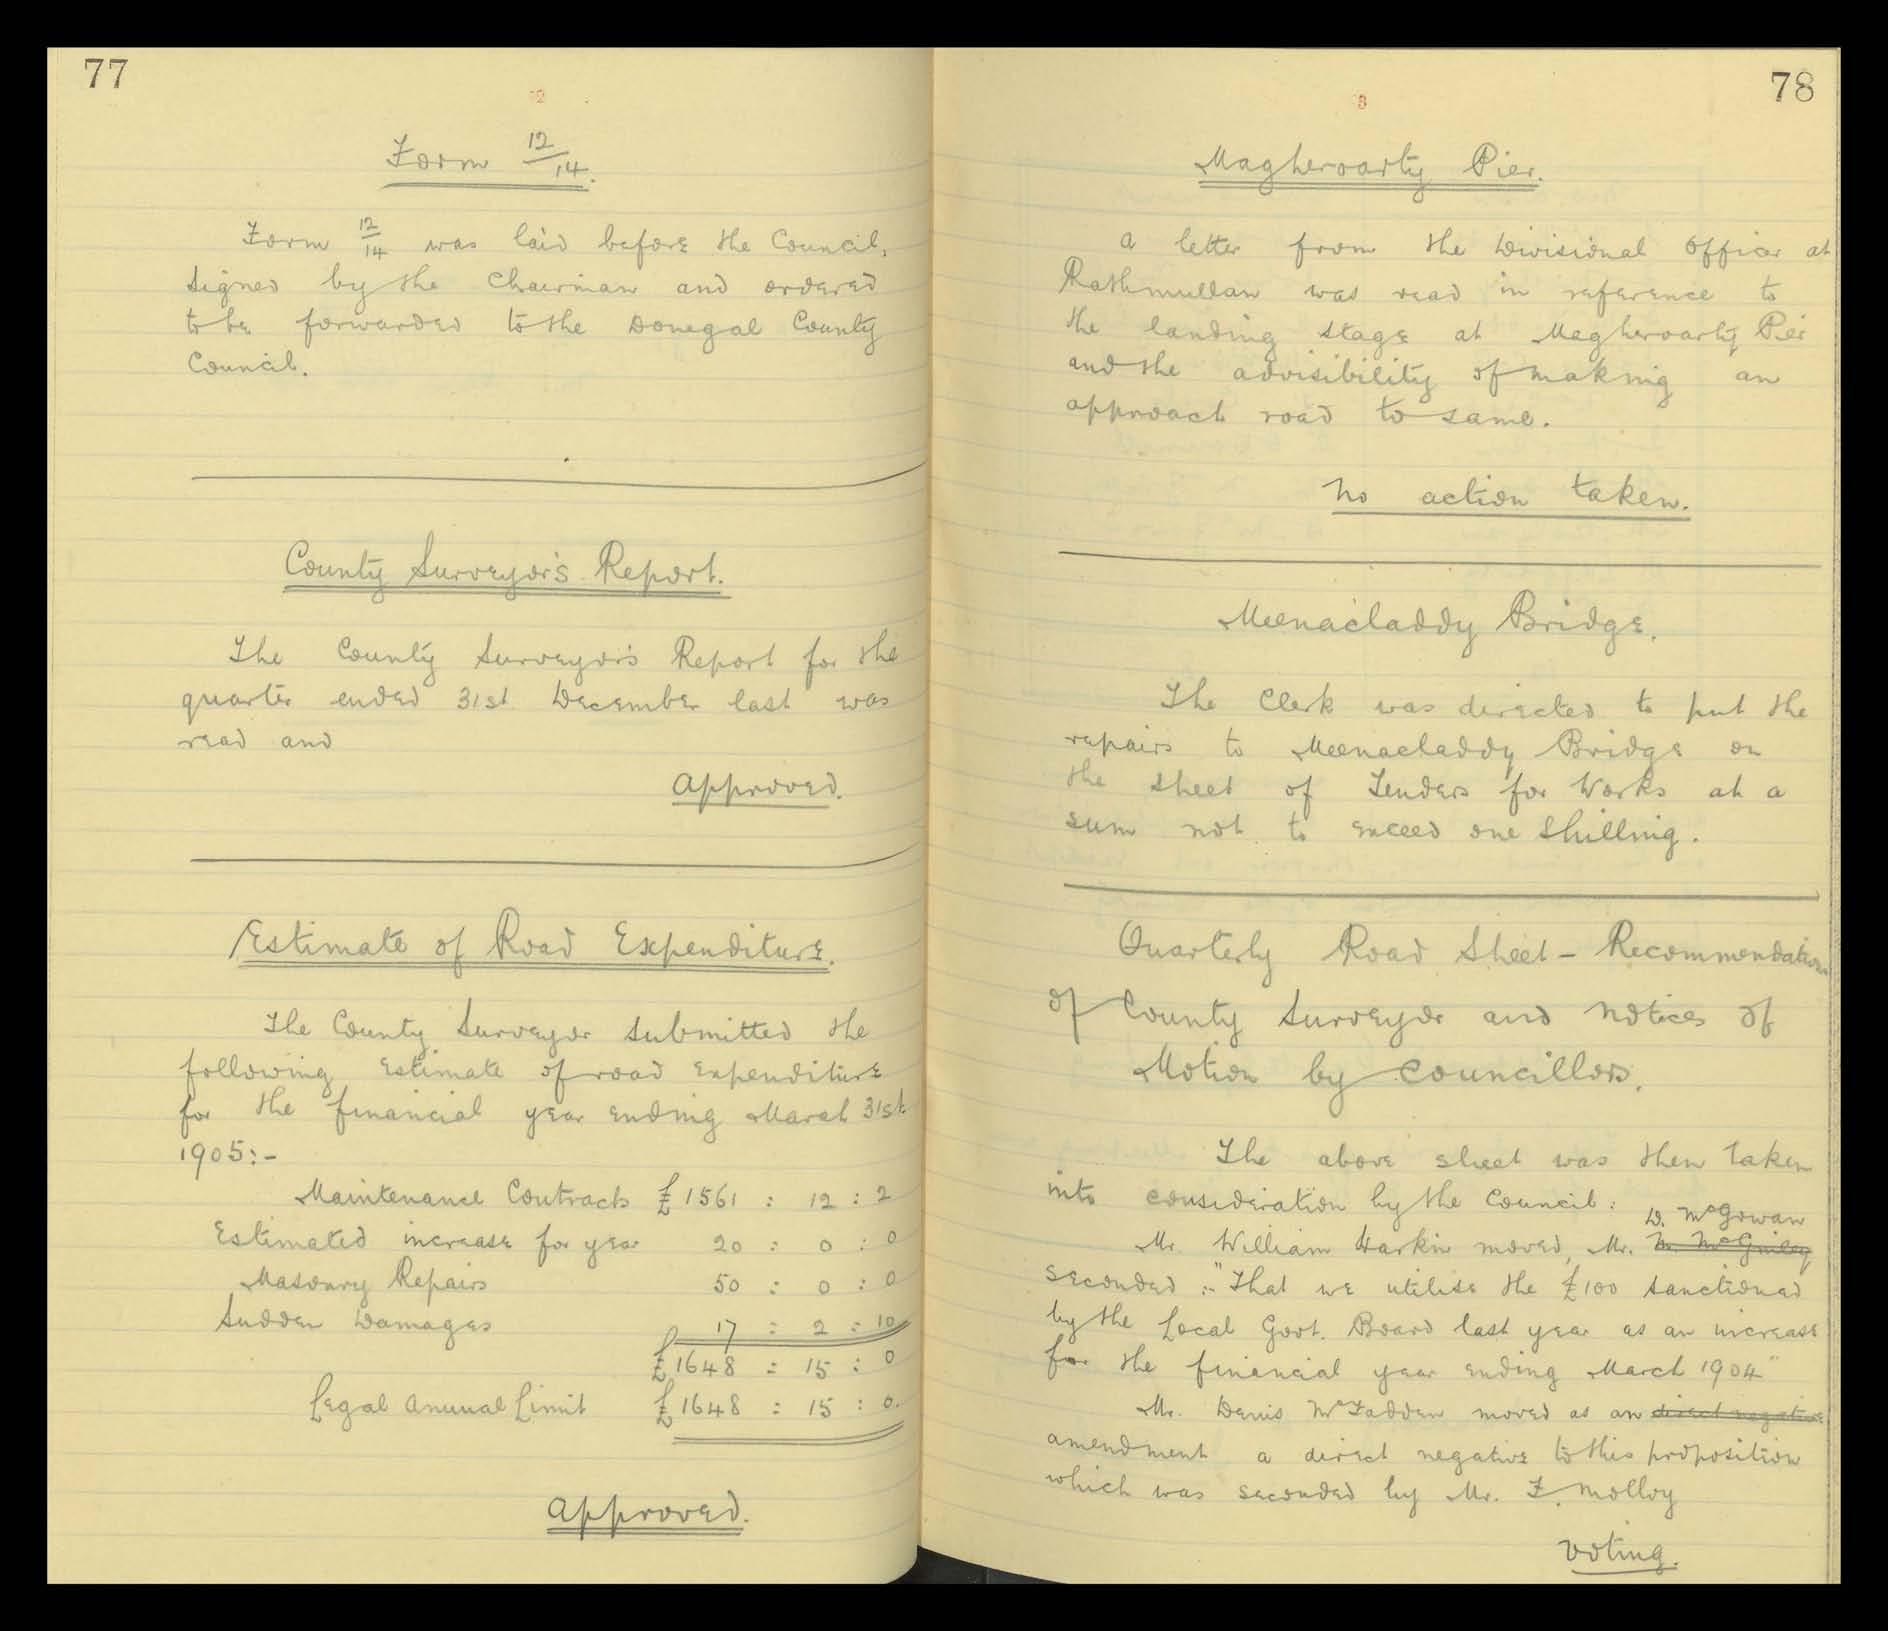 77
2
Form 12/14.
Form 12/14 was laid before the Council,
signed by the Chairman and ordered
to be forwarded to the Donegal County
Council.
County Surveyor's Report.
The County Surveyor's Report for the
quarter ended 31st December last was
read and
Approved.
Estimate of Road Expenditure.
The County Surveyor submitted the
following estimate of road expenditure
for the financial year ending March 31st
1905:-
Maintenance Contracts £1561 : 12 : 2
Estimated increase for year 20 : 0 : 0
Masonry Repairs 50 : 0 : 0
Sudden Damages 17 : 2 : 10
£1648 : 15 : 0
Legal Annual Limit £1648 : 15 : 0.
Approved.
78
3
Magheroarty Pier.
A letter from the Divisional Officer at
Rathmullan was read in reference to
the landing stage at Magheroarty Pier
and the advisibility of making an
approach road to same.
No action taken.
Meenacladdy Bridge.
The Clerk was directed to put the
repairs to Meenacladdy Bridge on
the sheet of Tenders for Works at a
sum not to exceed one shilling.
Quarterly Road Sheet - Recommendations
of County Surveyor and notices of
Motion by Councillors.
The above sheet was then taken
into consideration by the Council:
D. McGowan
Mr. William Harkin moved, Mr. M. McGinley
seconded :- "That we utilise the £100 sanctioned
by the Local Govt. Board last year as an increase
for the financial year ending March 1904"
Mr. Denis McFadden moved as an direct negative
amendment a direct negative to this proposition
which was seconded by Mr. F. Molloy
Voting.